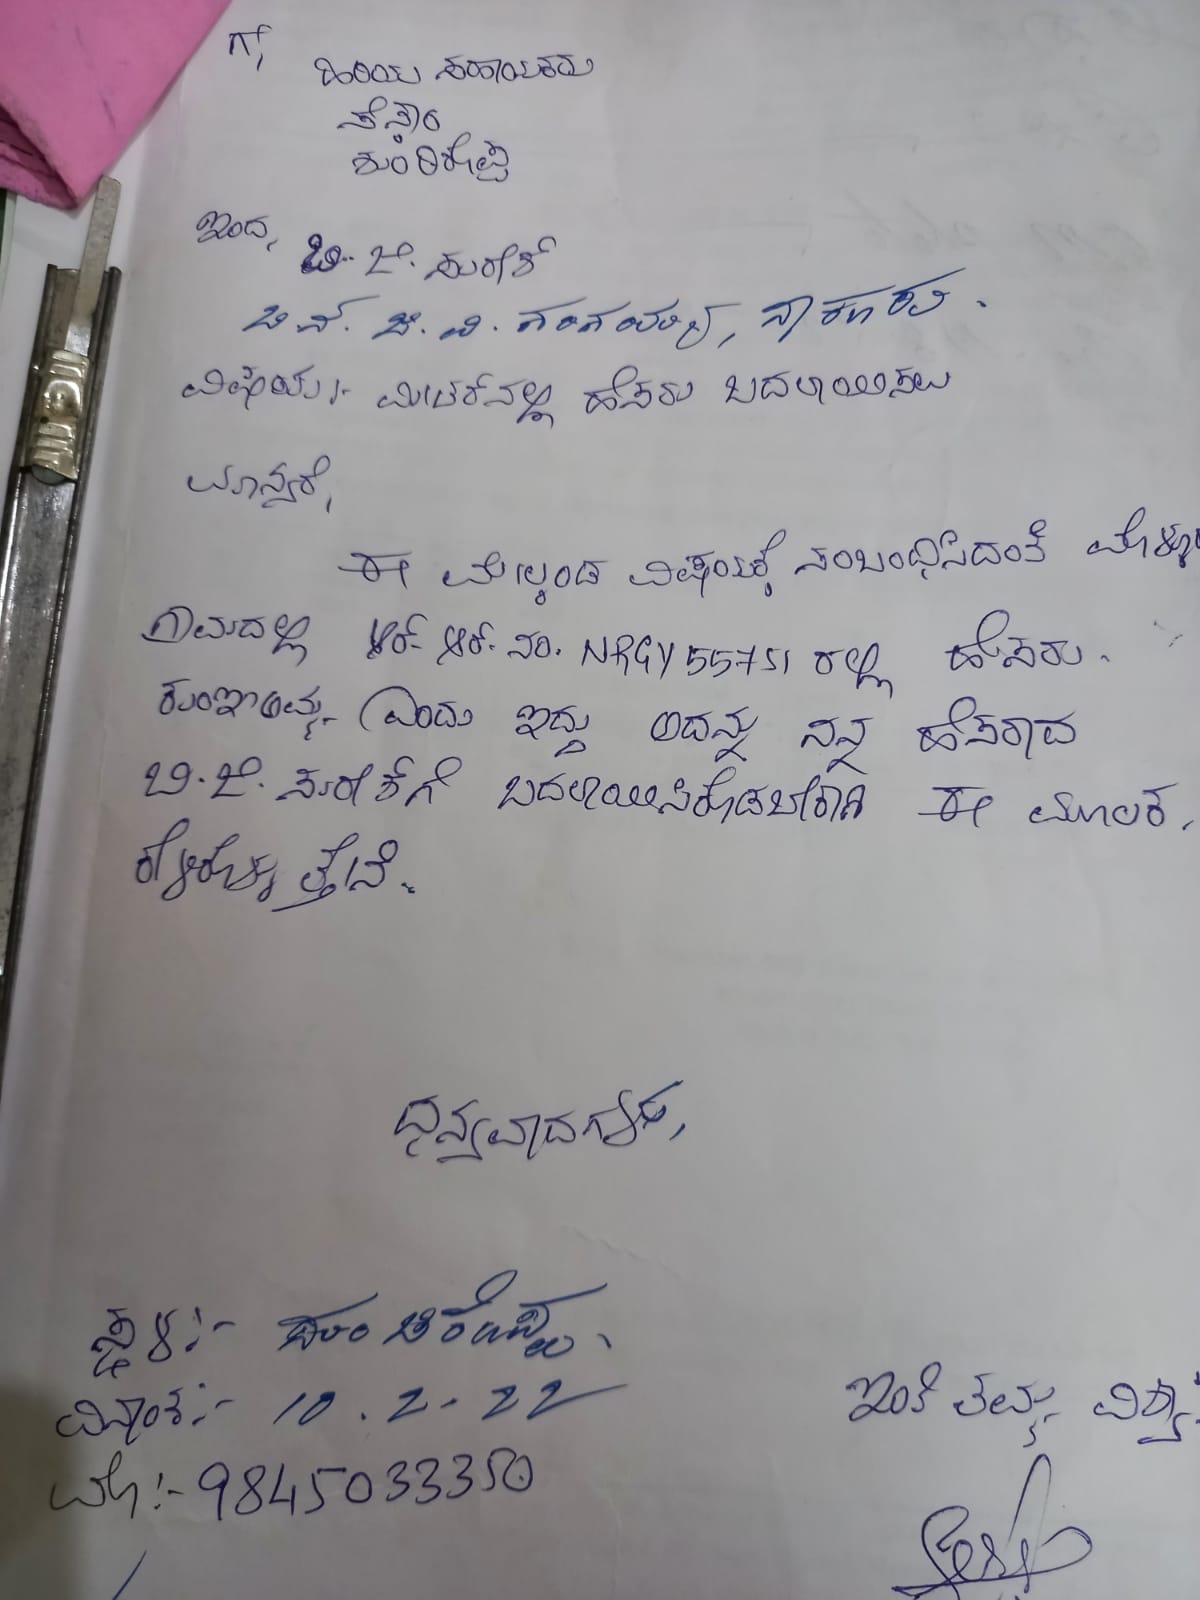 ಗೆ,
ಹಿರಿಯ ಸಹಾಯಕರು
ಸೆಸ್ಕಾಂ
ಇಂದ,
ಬಿ. ಜೆ. ಸುರೇಶ್
ವಿಷಯ:- ಮೀಟರ್‌ನಲ್ಲಿ ಹೆಸರು ಬದಲಾಯಿಸಲು
ಮಾನ್ಯರೆ,
ಈ ಮೇಲ್ಕಂಡ ವಿಷಯಕ್ಕೆ ಸಂಬಂಧಿಸಿದಂತೆ
ಗ್ರಾಮದಲ್ಲಿ ಆರ್. ಆರ್. ನಂ. NRGY55751 ರಲ್ಲಿ ಹೆಸರು.
ಎಂದು ಇದ್ದು ಅದನ್ನು ನನ್ನ ಹೆಸರಾದ
ಬಿ. ಜೆ. ಸುರೇಶ್‌ಗೆ ಬದಲಾಯಿಸಿಕೊಡಬೇಕಾಗಿ ಈ ಮೂಲಕ
ಕೇಳಿಕೊಳ್ಳುತ್ತೇನೆ.
ಧನ್ಯವಾದಗಳು,
ಸ್ಥಳ:-
ದಿನಾಂಕ:- 10.2-22
ಮೊ:- 9845033350
ಇಂತಿ ತಮ್ಮ